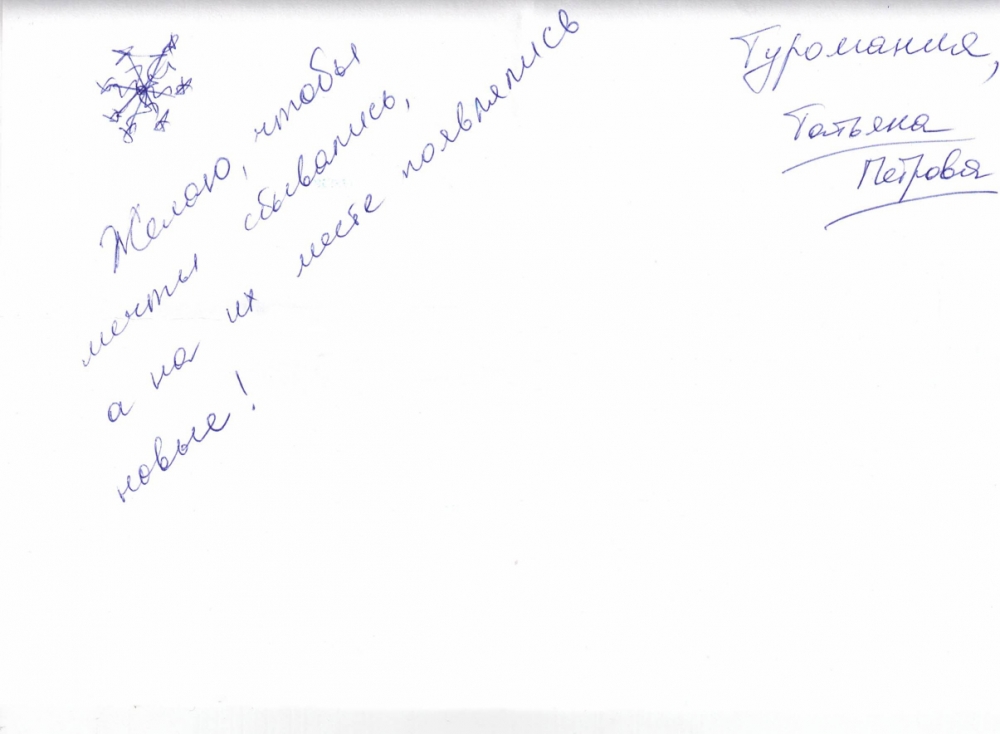 Желаю, чтобы
мечты сбывались,
а на их месте появлялись
новые!
Туромания,
Татьяна
Петрова